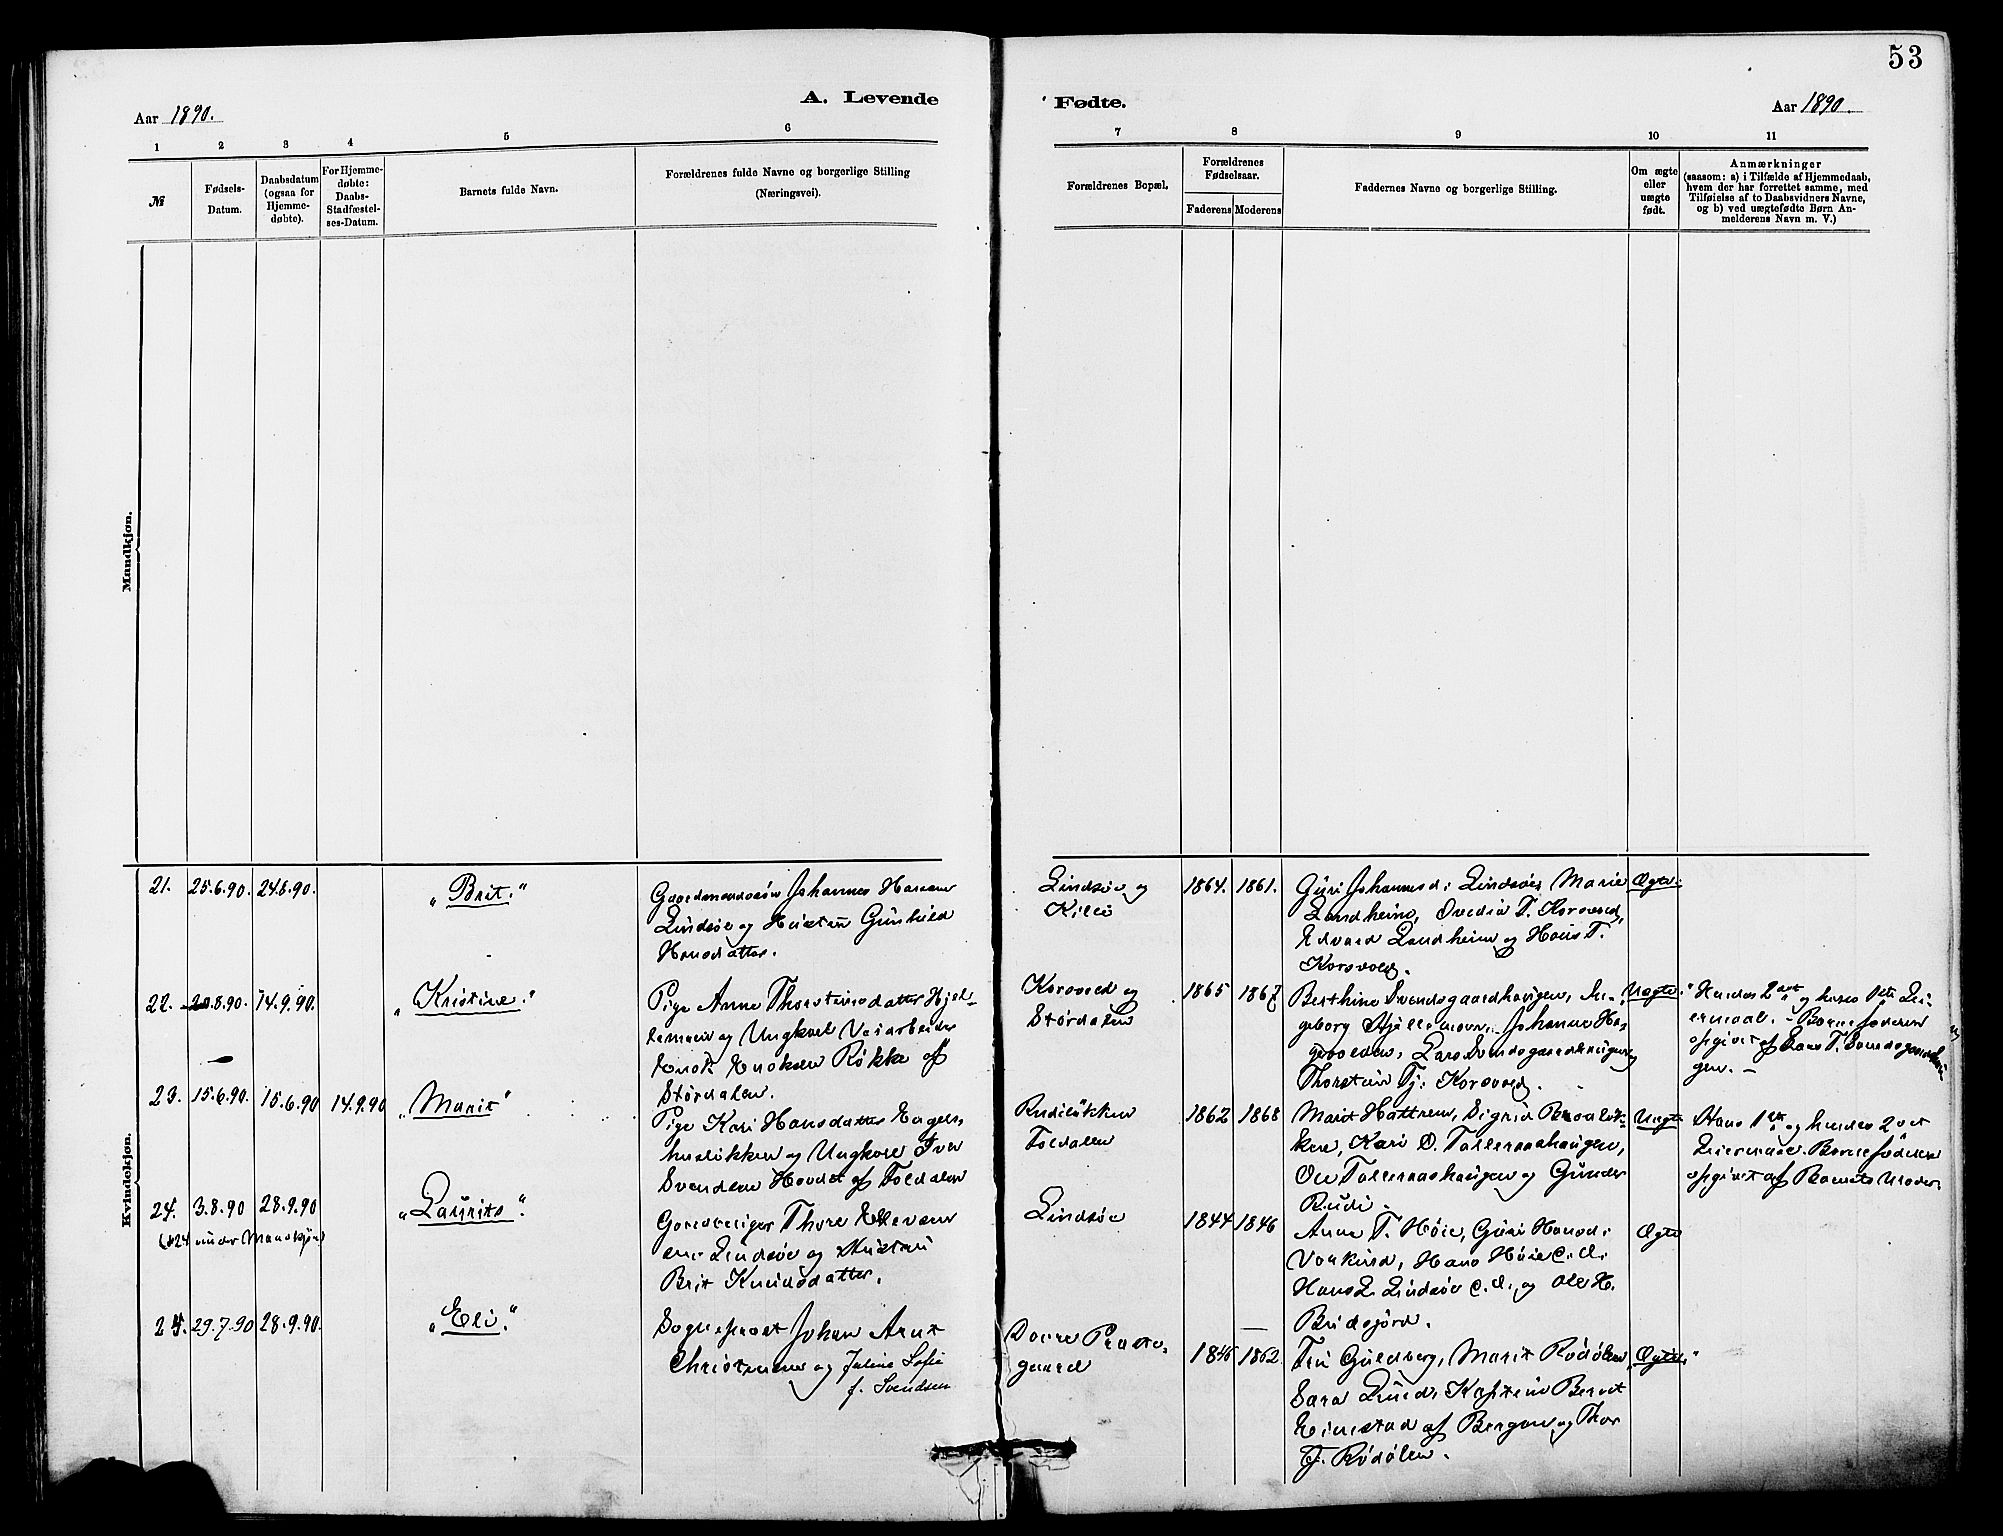 53
Aar 1890.
A. Levende
Fødte.
Aar 1890.
1
2
3
4
5
6
7
8
9
10
11
№
Fødsels-
Datum.
Daabsdatum
(ogsaa for
Hjemme-
døbte).
For Hjemme-
døbte:
Daabs-
Stadfæstel-
ses-Datum.
Barnets fulde Navn.
Forældrenes fulde Navne og borgerlige Stilling
(Næringsvei).
Forældrenes Bopæl.
Forældrenes
Fødselsaar.
Faderens
Moderens
Faddernes Navne og borgerlige Stilling.
Om ægte
eller
uægte
født.
Anmærkninger
(saasom: a) i Tilfælde af Hjemmedaab,
hvem der har forrettet samme, med
Tilføielse af to Daabsvidners Navne,
og b) ved uægtefødte Børn An-
melderens Navn m. V.)
Mandkjøn.
Kvindekjøn.
21.
25.6.90.
24.8.90.
"Brit."
Gaardmandssøn Johannes Hansen
Lindsøe og Hustru Gunhild
Hansdatter.
Lindsøe og
1864.
1861.
Guri Johannesd. Lindsøe, Marie
Landheim, Ovedia T. Korsvold,
Edvard Landheim og Hans T.
Korsvold.
Ægte.
22.
8.90.
14.9.90.
"Kristine."
Pige Anne Thorsteinsdatter Hjel-
og Ungkarl Veiarbeider
Enok Enoksen Røkke af
Størdalen.
Korsvold og
Størdalen
1865
1867
Berthine Svendsgaardhaugen, In-
geborg Johanne Ha-
Lars Svendsgaardhaugen og
Thorstein Tj. Korsvold.
Uægte.
Hendes 2det og hans 1ste Lei-
ermaal. - Barnefaderen
opgivet af Lars T. Svendsgaardhau-
gen. -
23.
15.6.90.
15.6.90
14.9.90
"Marit"
Pige Kari Hansdatter Engels-
husløkken og Ungkarl Iver
Svendsen Hovdet af Foldalen
Rudiløkken
Foldalen
1862
1868
Marit Hattrem, Sigrid
Kari O. Talleraashaugen,
Ole Talleraashaugen og Gunder
Rudi.
Uægte
Hans 1ste og hendes 2det
Leiermaal. Barnefaderen
opgivet af Barnets Moder.
24.
3.8.90
28.9.90
"Laurits."
(#24 under Mandkjøn)
Gaardbruger Thore Ellevsen
Lindsøe og Hustru
Brit Knudsdatter.
Lindsøe
1844
1846
Anne T. Høie, Guri Hansd.
Vorkind, Hans Høie C. d.
Hans L. Lindsøe C. d. og Ole H.
Budsjord.
Ægte
25.
29.7.90
28.9.90.
"Eli."
Sogneprest Johan Arnt
Christensen og Juline Sofie
f. Svendsen
Dovre Præste-
gaard
1846
1862
Fru Guldberg, Marit Rødølen,
Sara Lund, Kaptein Bernt
Einestad af Bergen og Thor
T. Rødølen.
"Ægte."